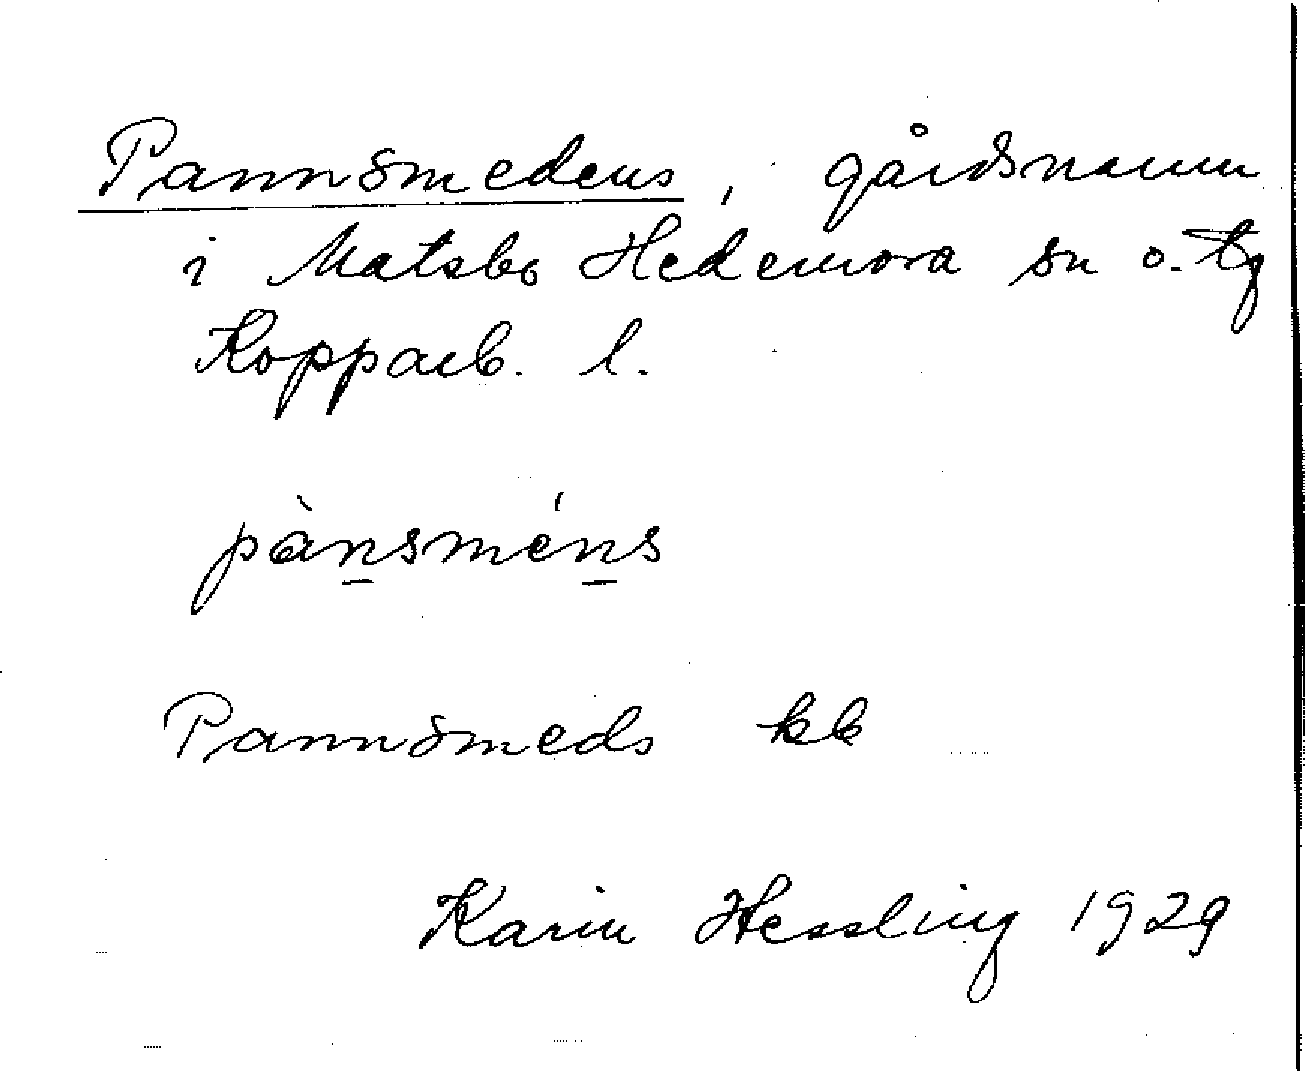 Pannsmedens, gårdsnamn
i Matsbo Hedemora sn o. tg
Kopparb. l.
pànsméns
Pannsmeds kk
Karin Hessling 1929